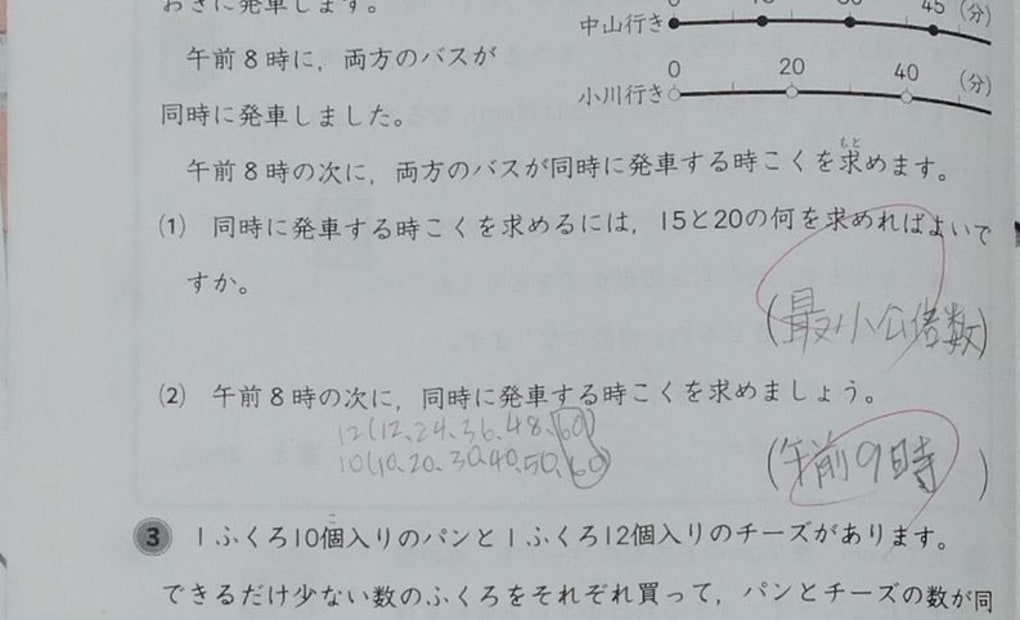 おきに発車します。
45 (分)
中山行き
午前8時に，両方のバスが
0 20 40 (分)
小川行き
同時に発車しました。
もと
午前8時の次に，両方のバスが同時に発車する時こくを求めます。
(1) 同時に発車する時こくを求めるには，15と20の何を求めればよいで
すか。
(最小公倍数)
(2) 午前8時の次に，同時に発車する時こくを求めましょう。
12(12、24、36、48、60)
10(10、20、30、40、50、60)
(午前9時)
こ
3 1ふくろ10個入りのパンと1ふくろ12個入りのチーズがあります。
できるだけ少ない数のふくろをそれぞれ買って，パンとチーズの数が同